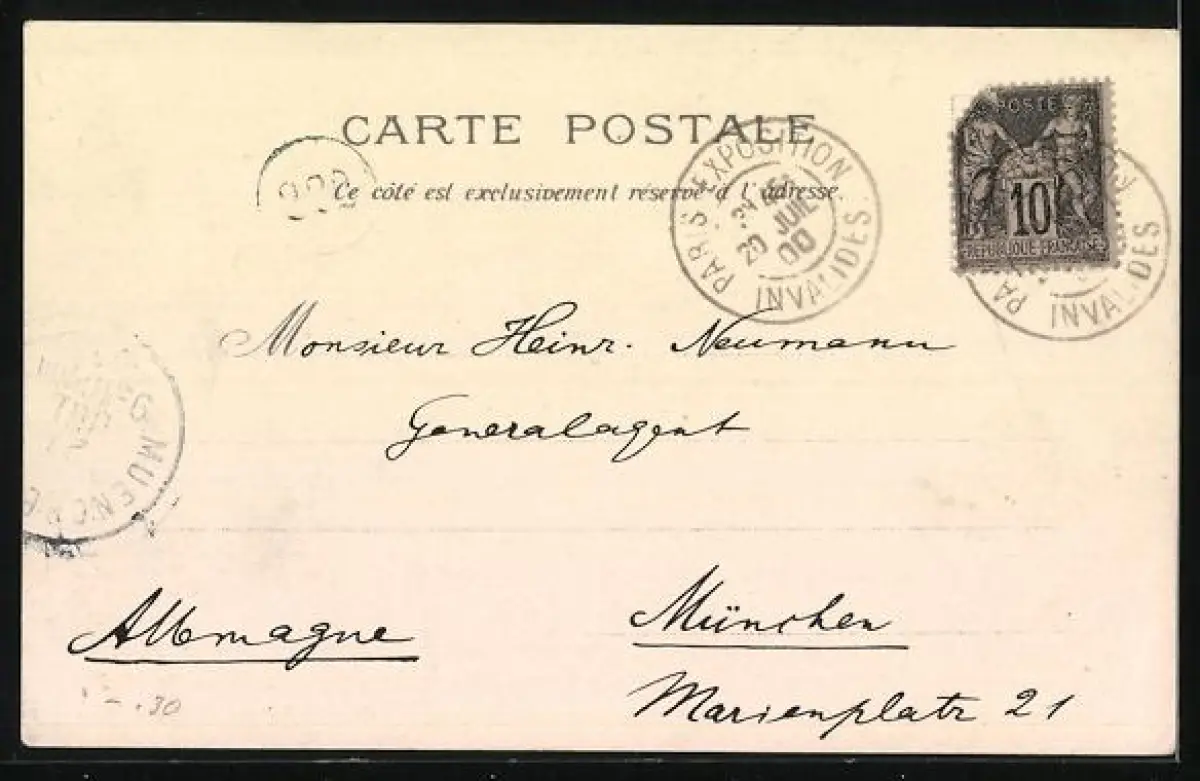 CARTE POSTALE
Ce côté est exclusivement réservé à l'adresse.
PARIS EXPOSITION
20 JUIL
00
INVALIDES
POSTE
10
REPUBLIQUE FRANCAISE
PA
INVALIDES
Monsieur Heinr. Neumann
Generalagent
MUENCHE
Allemagne
München
Marienplatz 21
30